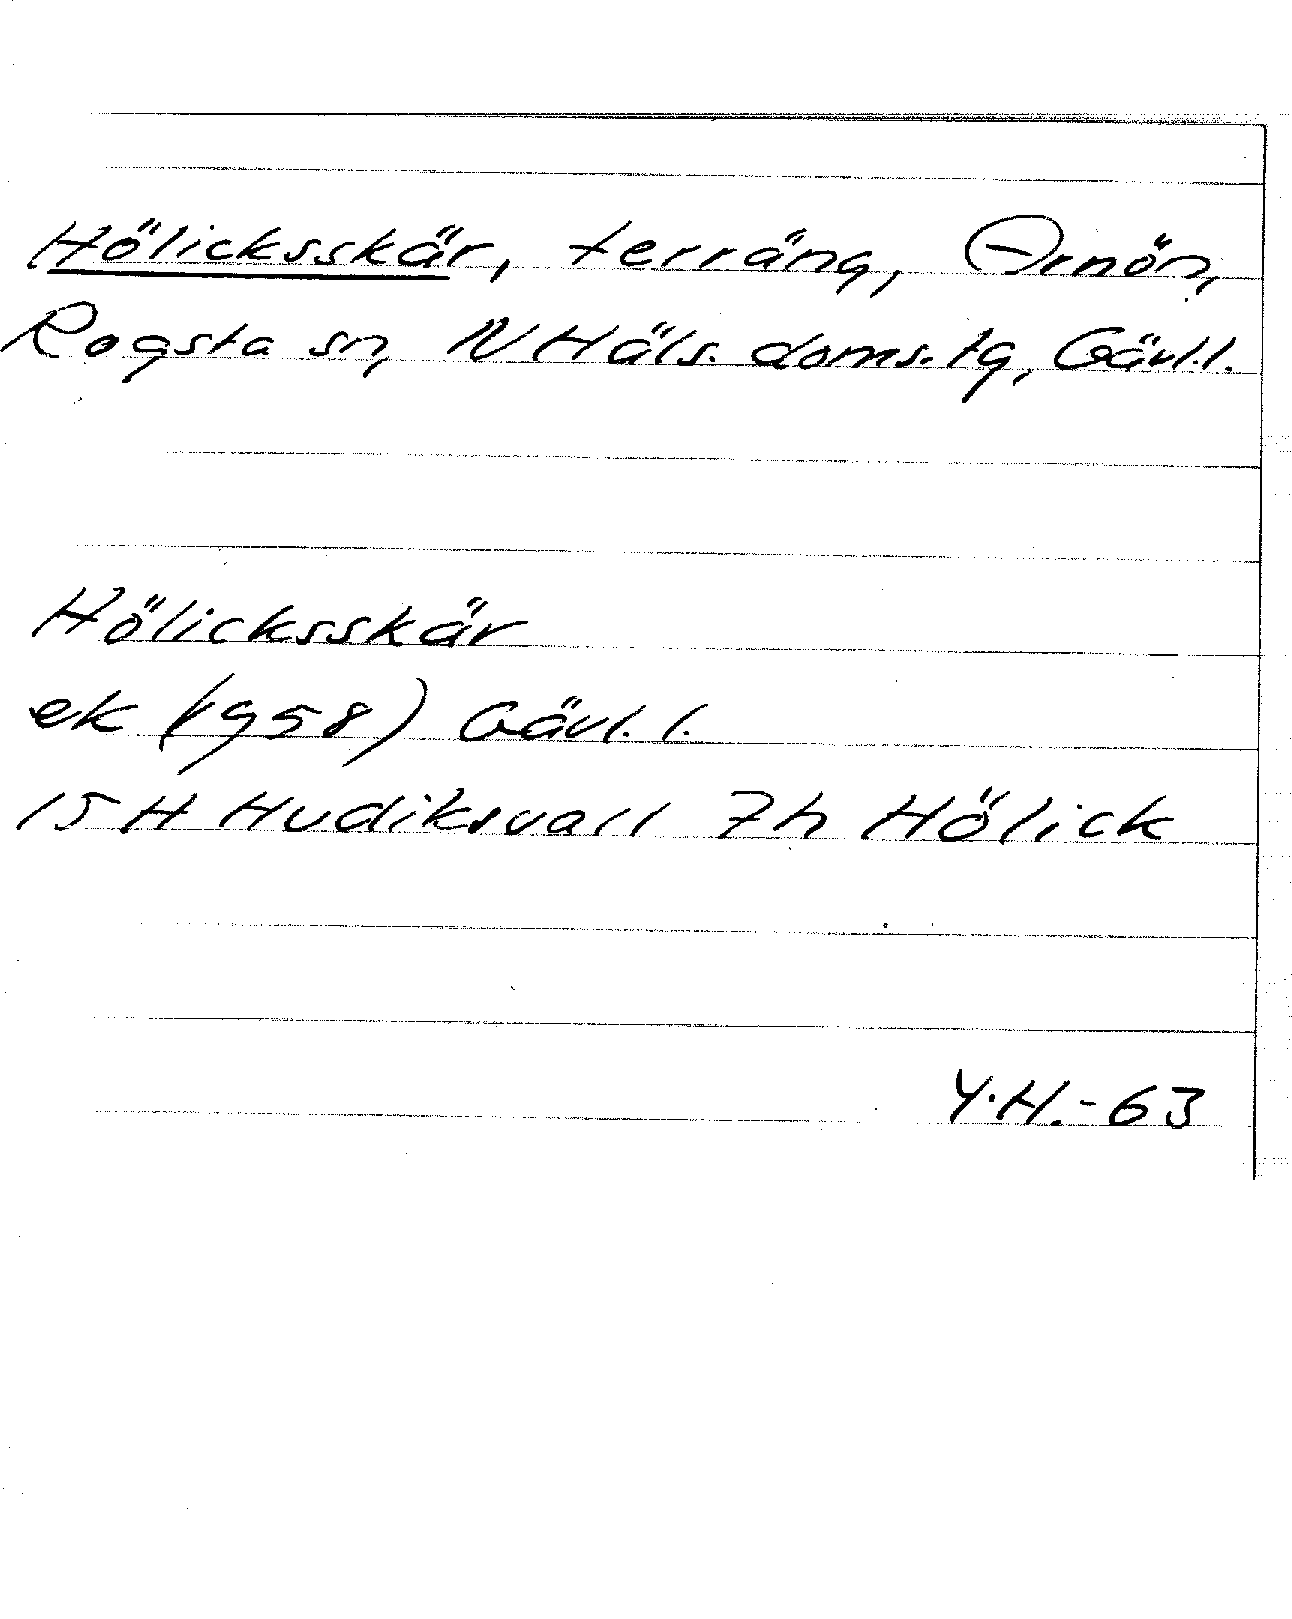 Hölicksskär, terräng, Arnön,
Rogsta sn, N Häls. doms.tg, Gävl.l.
Hölicksskär
ek (1958) Gävl. l.
15 H Hudiksvall 7h Hölick
Y.H.-63